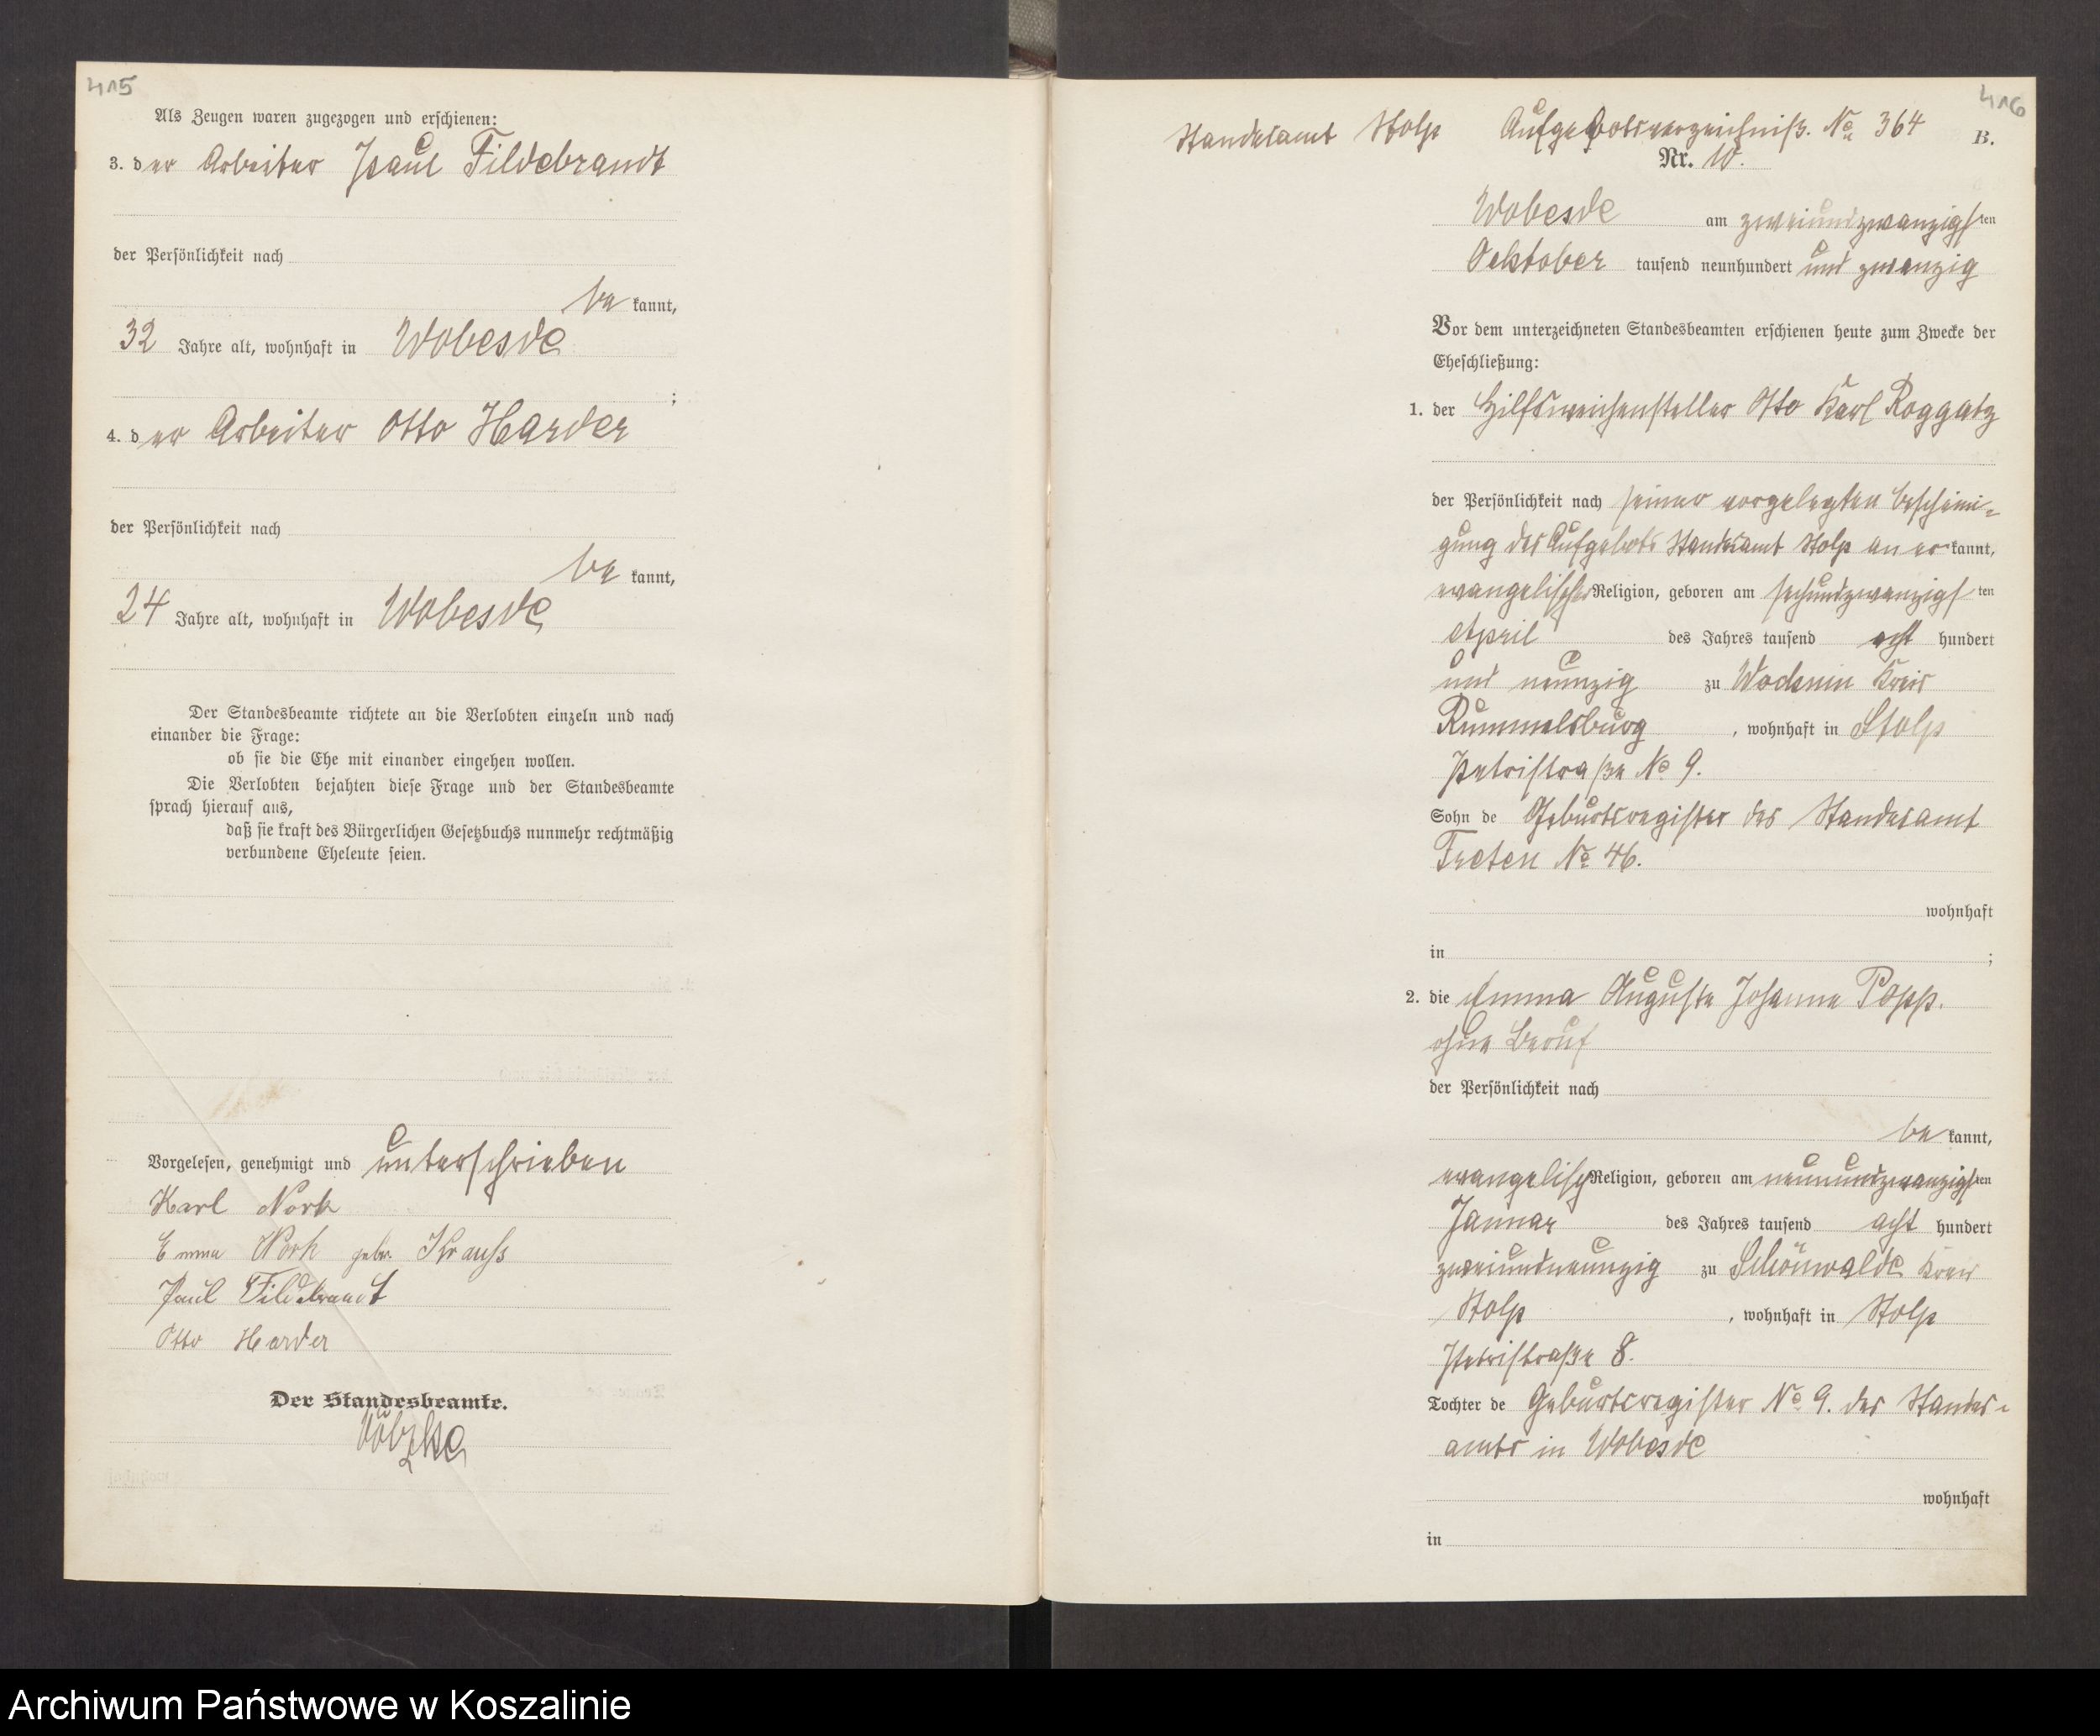 415
Als Zeugen waren zugezogen und erschienen:
3. der Arbeiter Paul Fildebrandt
der Persönlichkeit nach
be kannt,
32 Jahre alt, wohnhaft in Wobesde
;
4. der Arbeiter Otto Harder
der Persönlichkeit nach
be kannt,
24 Jahre alt, wohnhaft in Wobesde
Der Standesbeamte richtete an die Verlobten einzeln und nach
einander die Frage:
ob sie die Ehe mit einander eingehen wollen.
Die Verlobten bejahten diese Frage und der Standesbeamte
sprach hierauf aus,
daß sie kraft des Bürgerlichen Gesetzbuchs nunmehr rechtmäßig
verbundene Eheleute seien.
Vorgelesen, genehmigt und unterschrieben
Karl Nork
Emma Nork gebr. Krauss
Paul Fildebrandt
Otto Harder
Der Standesbeamte.
416
Standesamt Stolp Aufgebotsverzeichniß. No 364
B.
Nr. 10.
Wobesde am zweiundzwanzigsten
Oektober tausend neunhundert und zwanzig
Vor dem unterzeichneten Standesbeamten erschienen heute zum Zwecke der
Eheschließung:
1. der Hilfsweichensteller Otto Karl Roggatz
der Persönlichkeit nach seiner vorgelegten Bescheini-
gung des Aufgebots Standesamt Stolp an er kannt,
evangelischer Religion, geboren am sechundzwanzigsten
April des Jahres tausend acht hundert
und neunzig zu Wocknin Kreis
Rummelsburg, wohnhaft in Stolp
Petristraße No 9.
Sohn de Geburtsregister des Standesamt
Treten No 46.
wohnhaft
in ;
2. die Emma Auguste Johanne Popp.
ohne Beruf
der Persönlichkeit nach
be kannt,
evangelisch Religion, geboren am neunundzwanzigsten
Januar des Jahres tausend acht hundert
zweiundneunzig zu Schönwalde Kreis
Stolp, wohnhaft in Stolp
Petristraße 8.
Tochter de Geburtsregister No 9. des Standes-
amts in Wobesde
wohnhaft
in
Archiwum Państwowe w Koszalinie